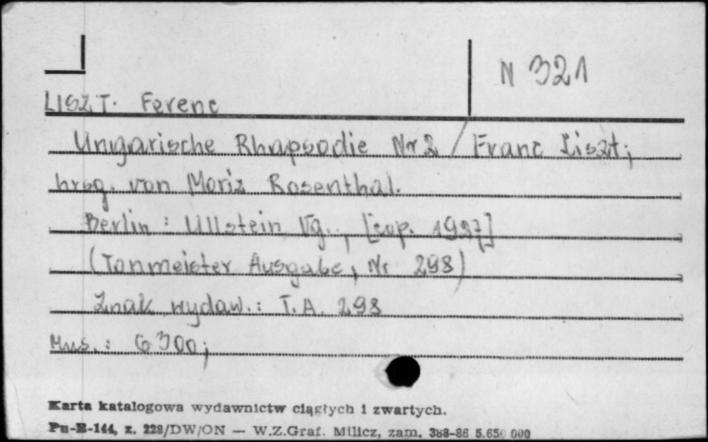 N 321
LISZT. Ferenc
Ungarische Rhapsodie Nr 2 / Franc Liszt;
hrsg. von Moriz Rosenthal.
Berlin : Ullstein Vg., [cop. 1927]
(Tonmeister Ausgabe, Nr 298)
Znak wydaw.: T.A. 298
Mus.: 6300;
Karta katalogowa wydawnictw ciągłych i zwartych.
Pu-B-144, z. 228/DW/ON — W.Z.Graf. Milicz, zam. 388-86 5.650 000